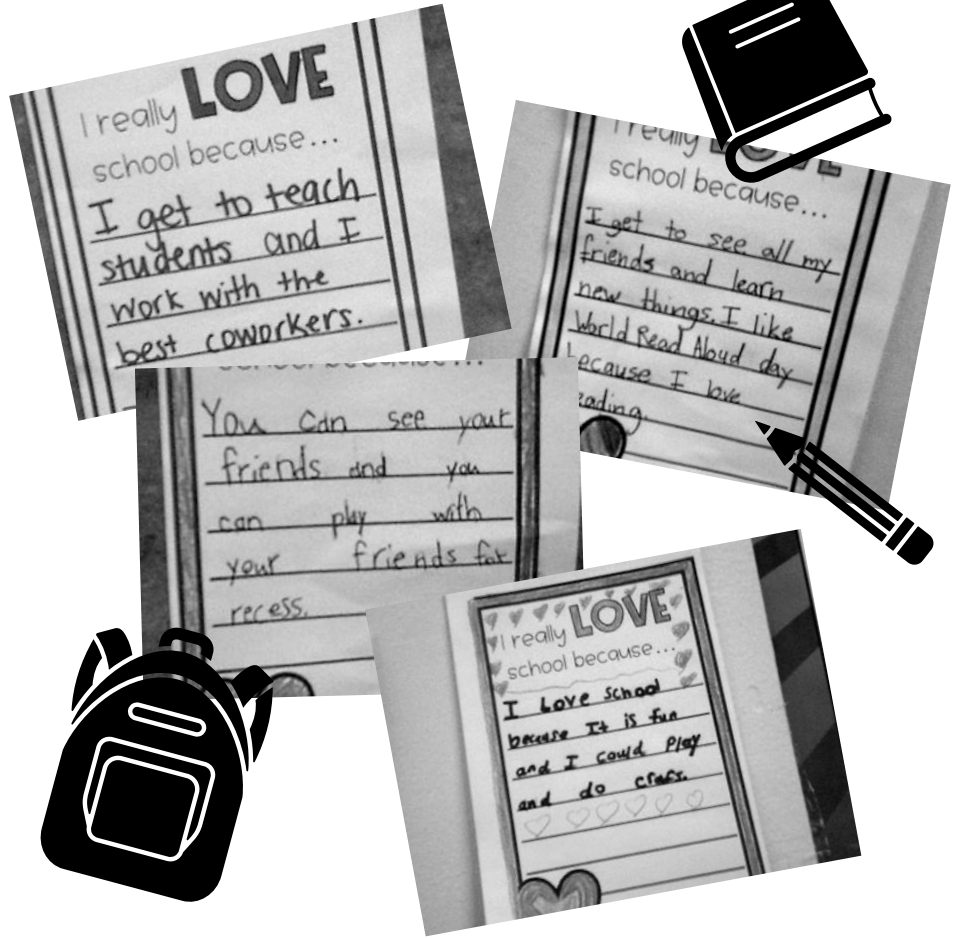 I really LOVE
school because...
I get to teach
students and I
work with the
best coworkers.
I really LOVE
school because...
I get to see all my
friends and learn
new things. I like
World Read Aloud day
because I love
reading.
school because...
You can see your
friends and you
can play with
your friends for
recess.
I really LOVE
school because...
I Love school
because It is fun
and I could Play
and do crafs.